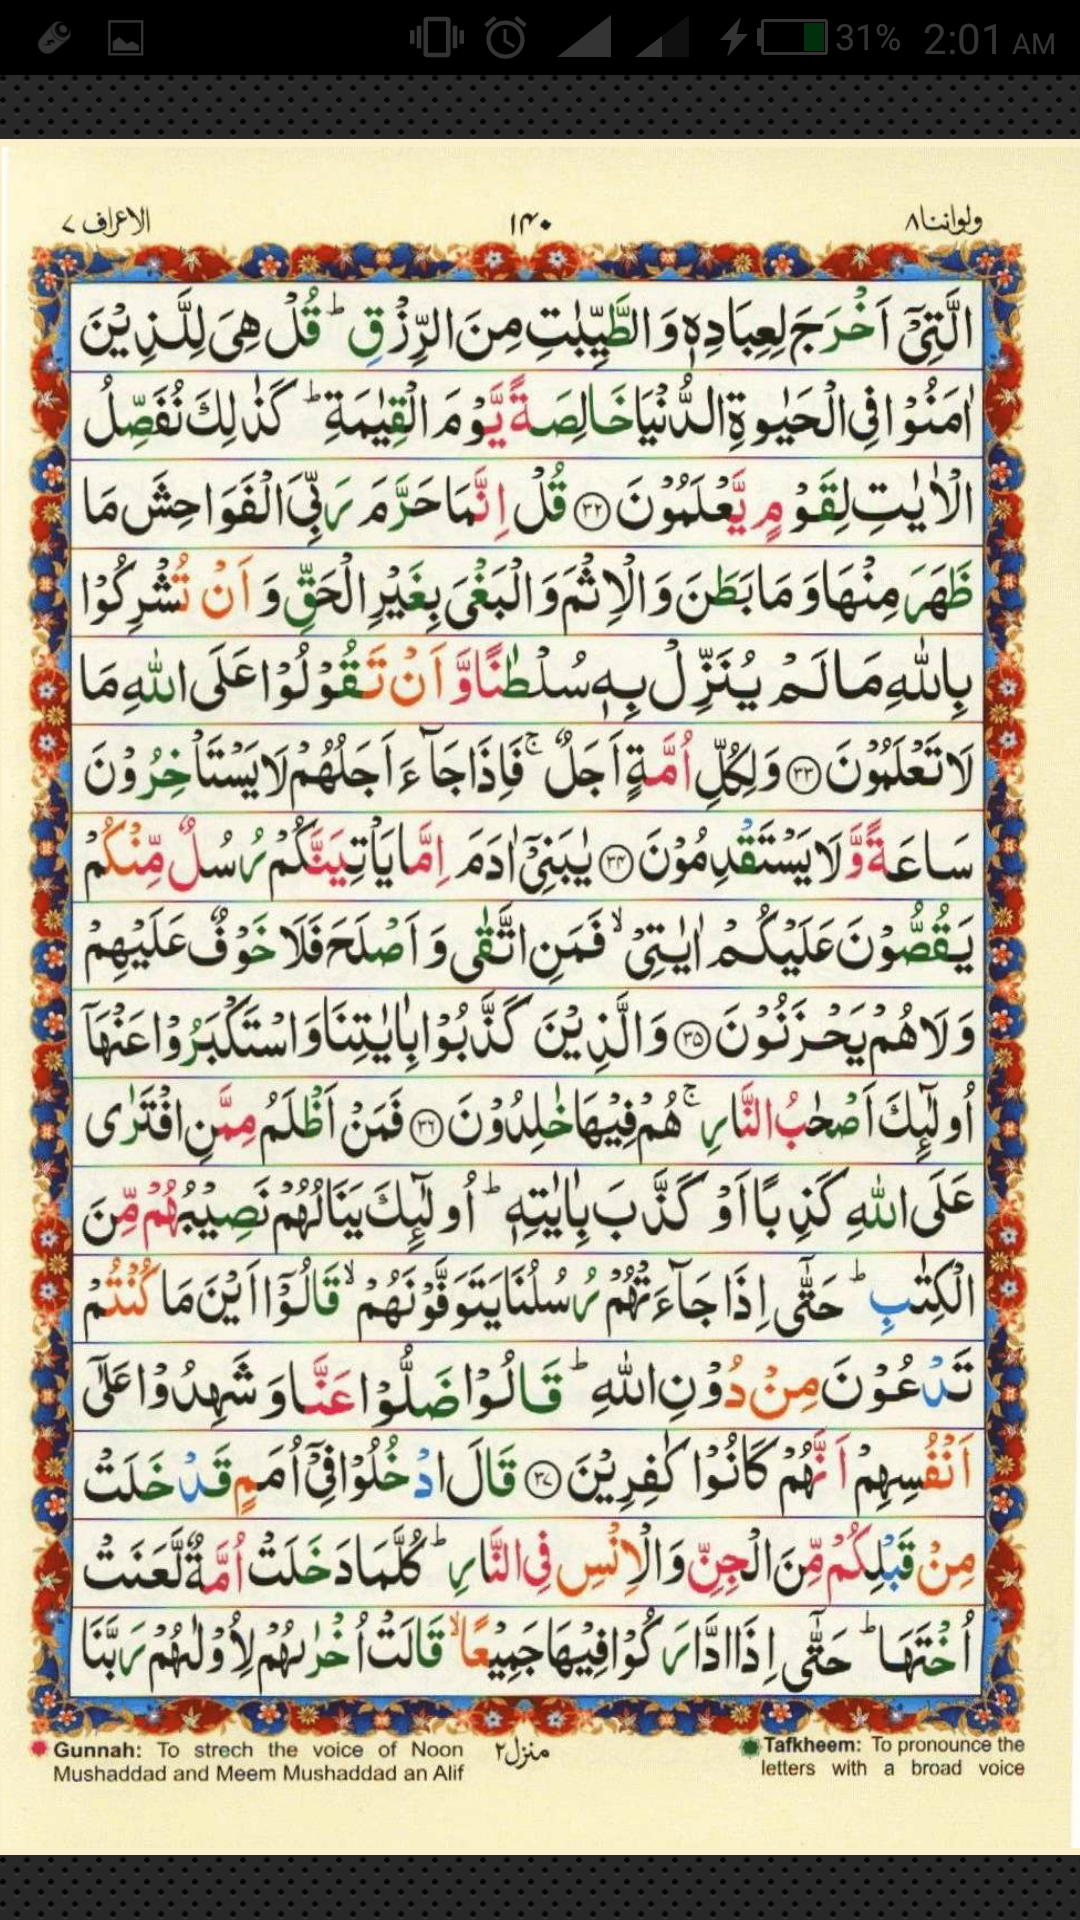 31% 2:01 AM
ولواننا ٨ ١٤٠ الاعراف ٧
الَّتِیْۤ اَخْرَجَ لِعِبَادِهٖ وَ الطَّیِّبٰتِ مِنَ الرِّزْقِ ؕ قُلْ هِیَ لِلَّذِیْنَ
اٰمَنُوْا فِی الْحَیٰوةِ الدُّنْیَا خَالِصَةً یَّوْمَ الْقِیٰمَةِ ؕ كَذٰلِكَ نُفَصِّلُ
الْاٰیٰتِ لِقَوْمٍ یَّعْلَمُوْنَ ﴿۳۲﴾ قُلْ اِنَّمَا حَرَّمَ رَبِّیَ الْفَوَاحِشَ مَا
ظَهَرَ مِنْهَا وَ مَا بَطَنَ وَ الْاِثْمَ وَ الْبَغْیَ بِغَیْرِ الْحَقِّ وَ اَنْ تُشْرِكُوْا
بِاللّٰهِ مَا لَمْ یُنَزِّلْ بِهٖ سُلْطٰنًا وَّ اَنْ تَقُوْلُوْا عَلَی اللّٰهِ مَا
لَا تَعْلَمُوْنَ ﴿۳۳﴾ وَ لِكُلِّ اُمَّةٍ اَجَلٌ ۚ فَاِذَا جَآءَ اَجَلُهُمْ لَا یَسْتَاْخِرُوْنَ
سَاعَةً وَّ لَا یَسْتَقْدِمُوْنَ ﴿۳۴﴾ یٰبَنِیْۤ اٰدَمَ اِمَّا یَاْتِیَنَّكُمْ رُسُلٌ مِّنْكُمْ
یَقُصُّوْنَ عَلَیْكُمْ اٰیٰتِیْ ۙ فَمَنِ اتَّقٰی وَ اَصْلَحَ فَلَا خَوْفٌ عَلَیْهِمْ
وَ لَا هُمْ یَحْزَنُوْنَ ﴿۳۵﴾ وَ الَّذِیْنَ كَذَّبُوْا بِاٰیٰتِنَا وَ اسْتَكْبَرُوْا عَنْهَاۤ
اُولٰٓئِكَ اَصْحٰبُ النَّارِ ۚ هُمْ فِیْهَا خٰلِدُوْنَ ﴿۳۶﴾ فَمَنْ اَظْلَمُ مِمَّنِ افْتَرٰی
عَلَی اللّٰهِ كَذِبًا اَوْ كَذَّبَ بِاٰیٰتِهٖ ؕ اُولٰٓئِكَ یَنَالُهُمْ نَصِیْبُهُمْ مِّنَ
الْكِتٰبِ ؕ حَتّٰۤی اِذَا جَآءَتْهُمْ رُسُلُنَا یَتَوَفَّوْنَهُمْ ۙ قَالُوْۤا اَیْنَ مَا كُنْتُمْ
تَدْعُوْنَ مِنْ دُوْنِ اللّٰهِ ؕ قَالُوْا ضَلُّوْا عَنَّا وَ شَهِدُوْا عَلٰۤی
اَنْفُسِهِمْ اَنَّهُمْ كَانُوْا كٰفِرِیْنَ ﴿۳۷﴾ قَالَ ادْخُلُوْا فِیْۤ اُمَمٍ قَدْ خَلَتْ
مِنْ قَبْلِكُمْ مِّنَ الْجِنِّ وَ الْاِنْسِ فِی النَّارِ ؕ كُلَّمَا دَخَلَتْ اُمَّةٌ لَّعَنَتْ
اُخْتَهَا ؕ حَتّٰۤی اِذَا ادَّارَكُوْا فِیْهَا جَمِیْعًا ۙ قَالَتْ اُخْرٰىهُمْ لِاُوْلٰىهُمْ رَبَّنَا
Gunnah: To strech the voice of Noon
Mushaddad and Meem Mushaddad an Alif
منزل ٢
Tafkheem: To pronounce the
letters with a broad voice